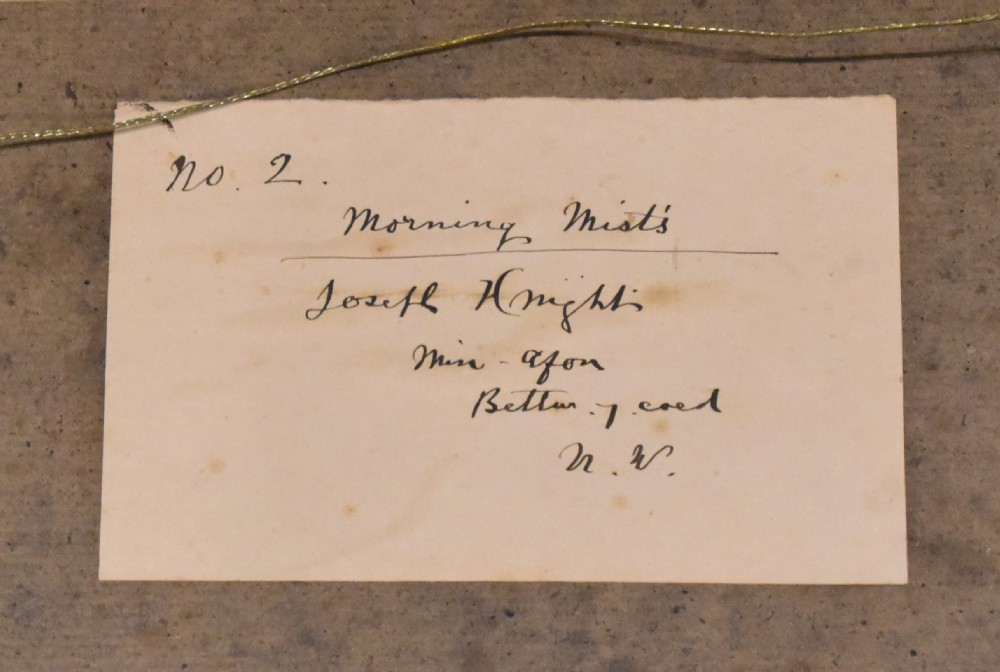 No. 2.
Morning Mist's
Joseph Knight
Min - Afon
Bettws. y. coed
N. W.